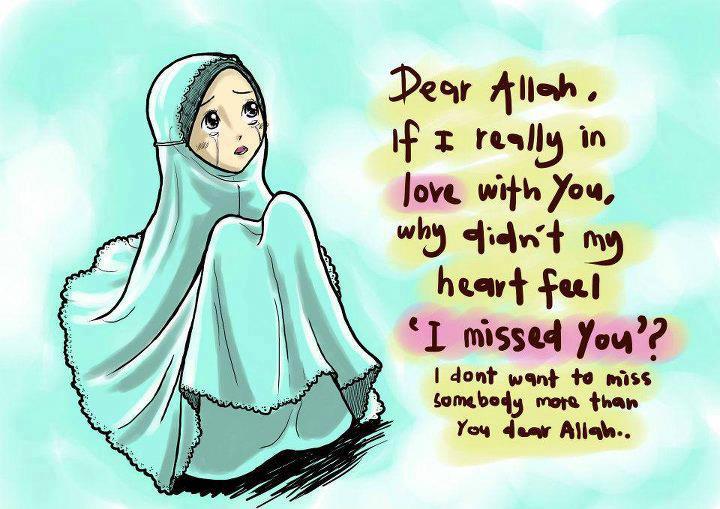 Dear Allah,
If I really in
love with You,
why didn't my
heart feel
'I missed You'?
I dont want to miss
somebody more than
You dear Allah..